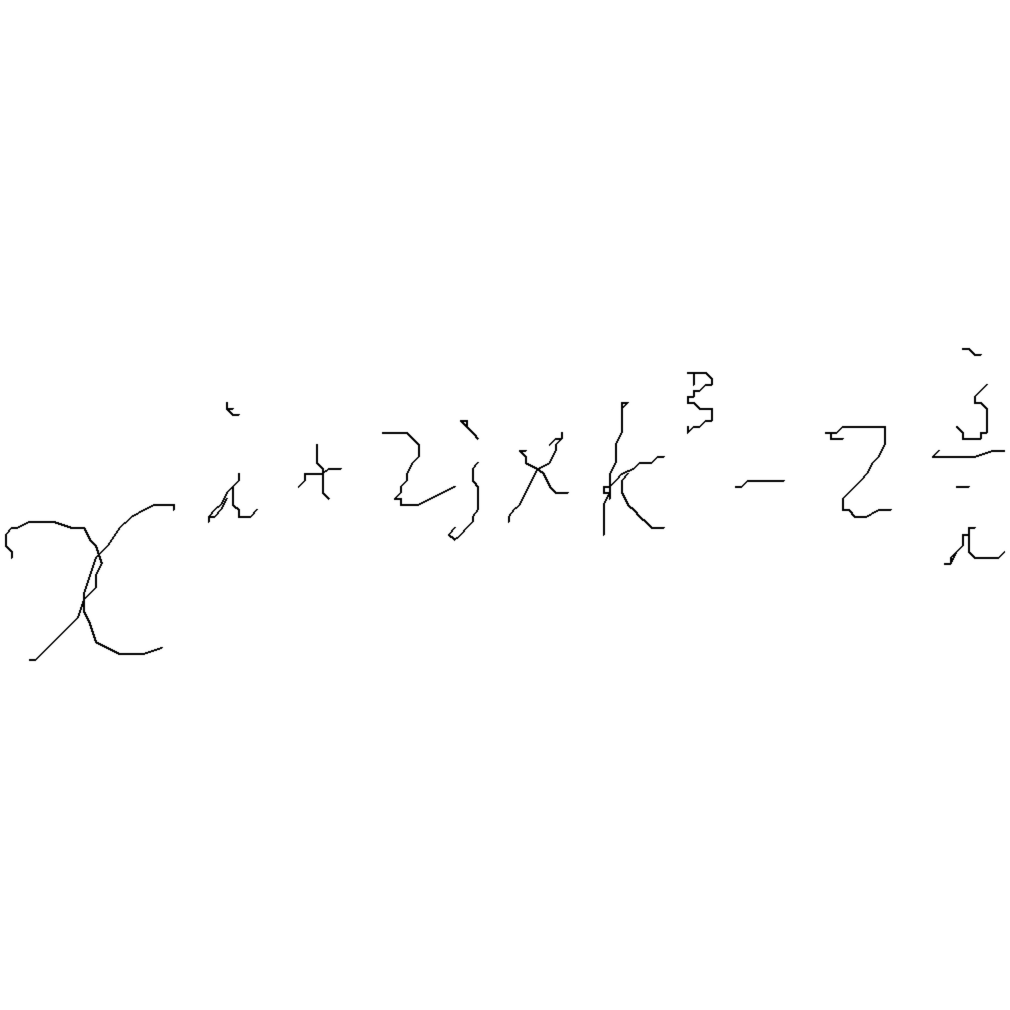 x i + 2 j × k^3 - 2 \frac{j}{i}